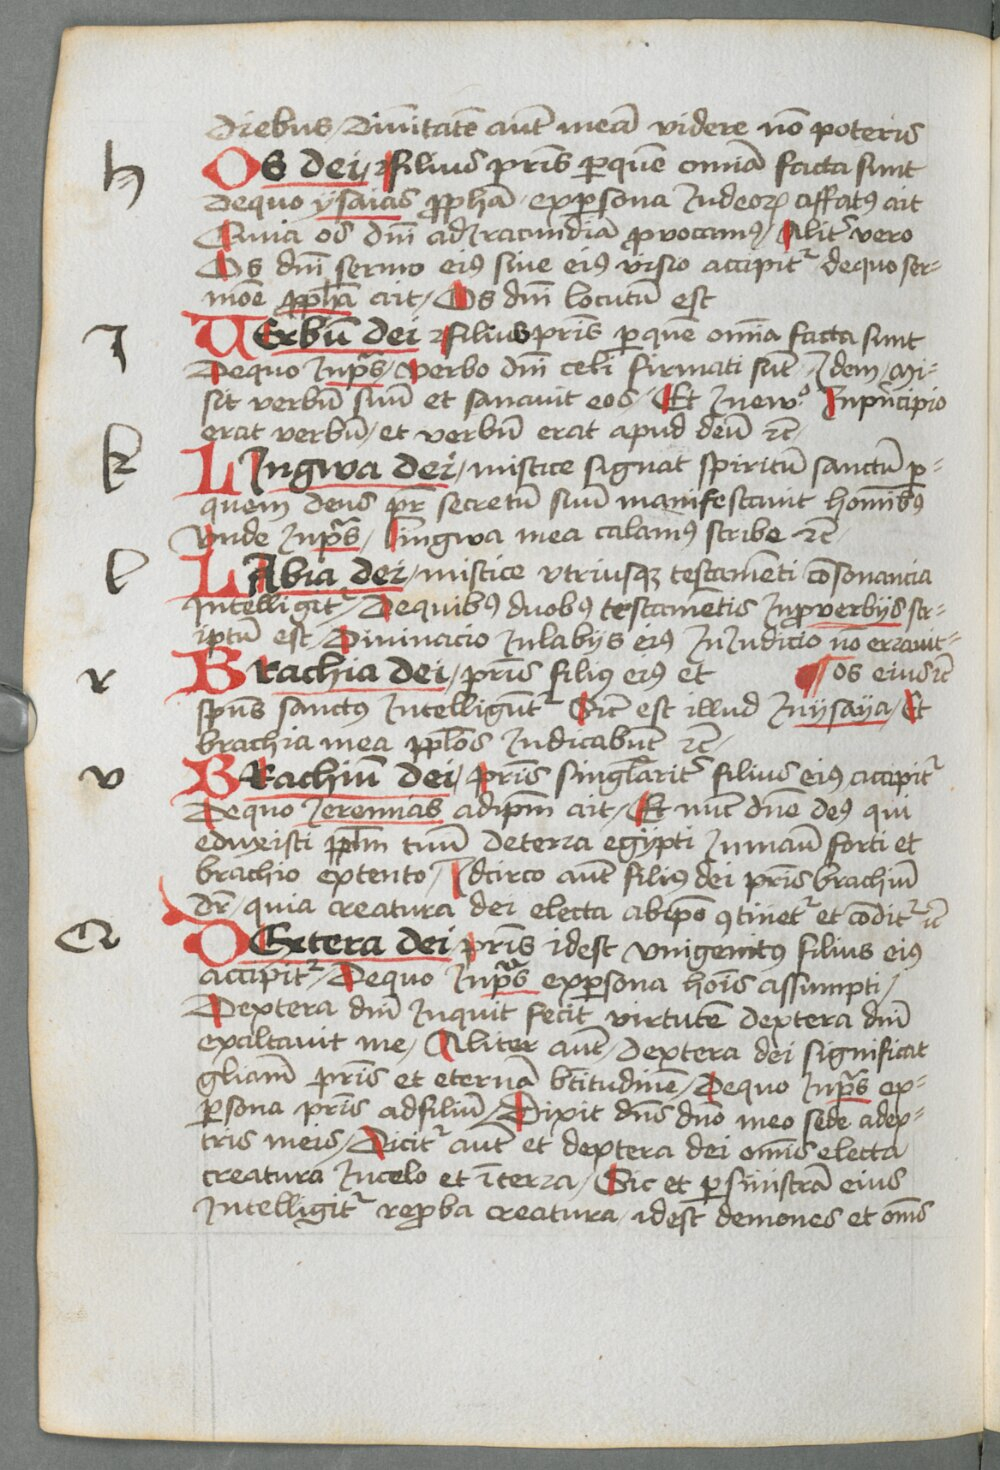 diebus / Diuitatē aut̄ meā videre nō poteris
h
Os dei / filius pr̄is ꝑ quē omīa facta sunt
De quo ysaias ꝓphā / ex ꝑsona Judeoꝝ affatꝰ ait
Quia os dn̄i ad Jracundiā ꝓuocamꝰ / Alit᷑ vero
Os dn̄i sermo eiꝰ siue eiꝰ visio accipit᷑ de quo ser-
moē ꝓphā ait / Os dn̄i locutū est
J
Uerbū dei / filius pr̄is ꝑ quē omīa facta sunt
De quo Jn ps̄ / verbo dn̄i celi firmati sūt / Jdem / Mi-
sit verbū suū et sanauit eos / Et Jn ewº Jn pͥncipio
erat verbū / et verbū erat apud deū ⁊c̄
k
Lingwa dei / mistice signat spiritū sanctū ꝑ-
quem deus pr̄ secretū suū manifestauit homībꝰ
Vnde Jn ps̄ / lingwa mea calamꝰ scribe ⁊c̄
l
Labia dei / mistice vtriusqꝫ testamēti cōsonancia
Jntelligit᷑ / De quibꝰ duobꝰ testamētis Jn ꝓuerbijs scr-
iptū est / Diuinacio Jn labijs eiꝰ Jn Judicio nō errauit-
r
Brachia dei / pr̄is filiꝰ eiꝰ et ¶ os eius ⁊c̄
spūs sanctꝰ Jntelligūt᷑ Sic̄ est illud Jn ysaya / Et
brachia mea ppl̄os Judicabūt ⁊c̄
v
Brachiū dei / pr̄is singl̄arit᷑ filius eiꝰ accipit᷑
De quo Jeremias ad ipm̄ ait / Et nūc dn̄e deꝰ qui
eduxisti ppl̄m tuū de terra egypti Jn manū forti et
brachio extento / Jdcirco aut̄ filiꝰ dei pr̄is brachiū
dr̄ / quia creatura dei electa ab ipō ꝯtinet᷑ et cōdit᷑ ⁊c̄
Dextera dei pr̄is idest vnigenitꝰ filius eiꝰ
accipit᷑ / De quo Jn ps̄ ex ꝑsona hoīs assumpti /
Dextera dn̄i Jnquit fecit virtutē dextera dn̄i
exaltauit me / Aliter aut̄ / dextera dei significat
gl̄iam pr̄is et eternā btītudinē / De quo Jn ps̄ ex-
ꝑsona pr̄is ad filiū / Dixit dn̄s dn̄o meo sede a dex-
tris meis / Dicit᷑ aut̄ et dextera dei omīs electa
creatura Jn celo et ī terra / Sic et ꝑ sinistrā eius
Jntelligit᷑ reꝓba creatura / idest demones et om̄s